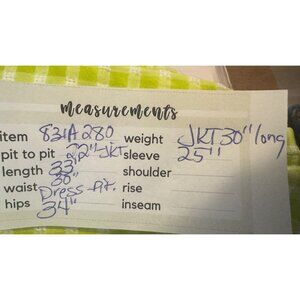 measurements
item 831A280 weight JKT 30" long
pit to pit 22" JKT sleeve 25"
length 33" shoulder
waist 30" Dress pit. rise
hips 34" inseam